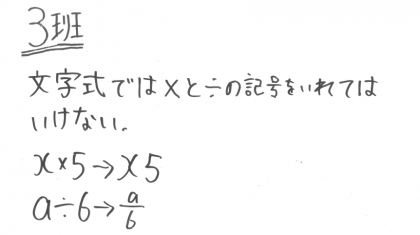 3班
文字式では×と÷の記号をいれては
いけない。
x×5→x5
a÷6→a/6